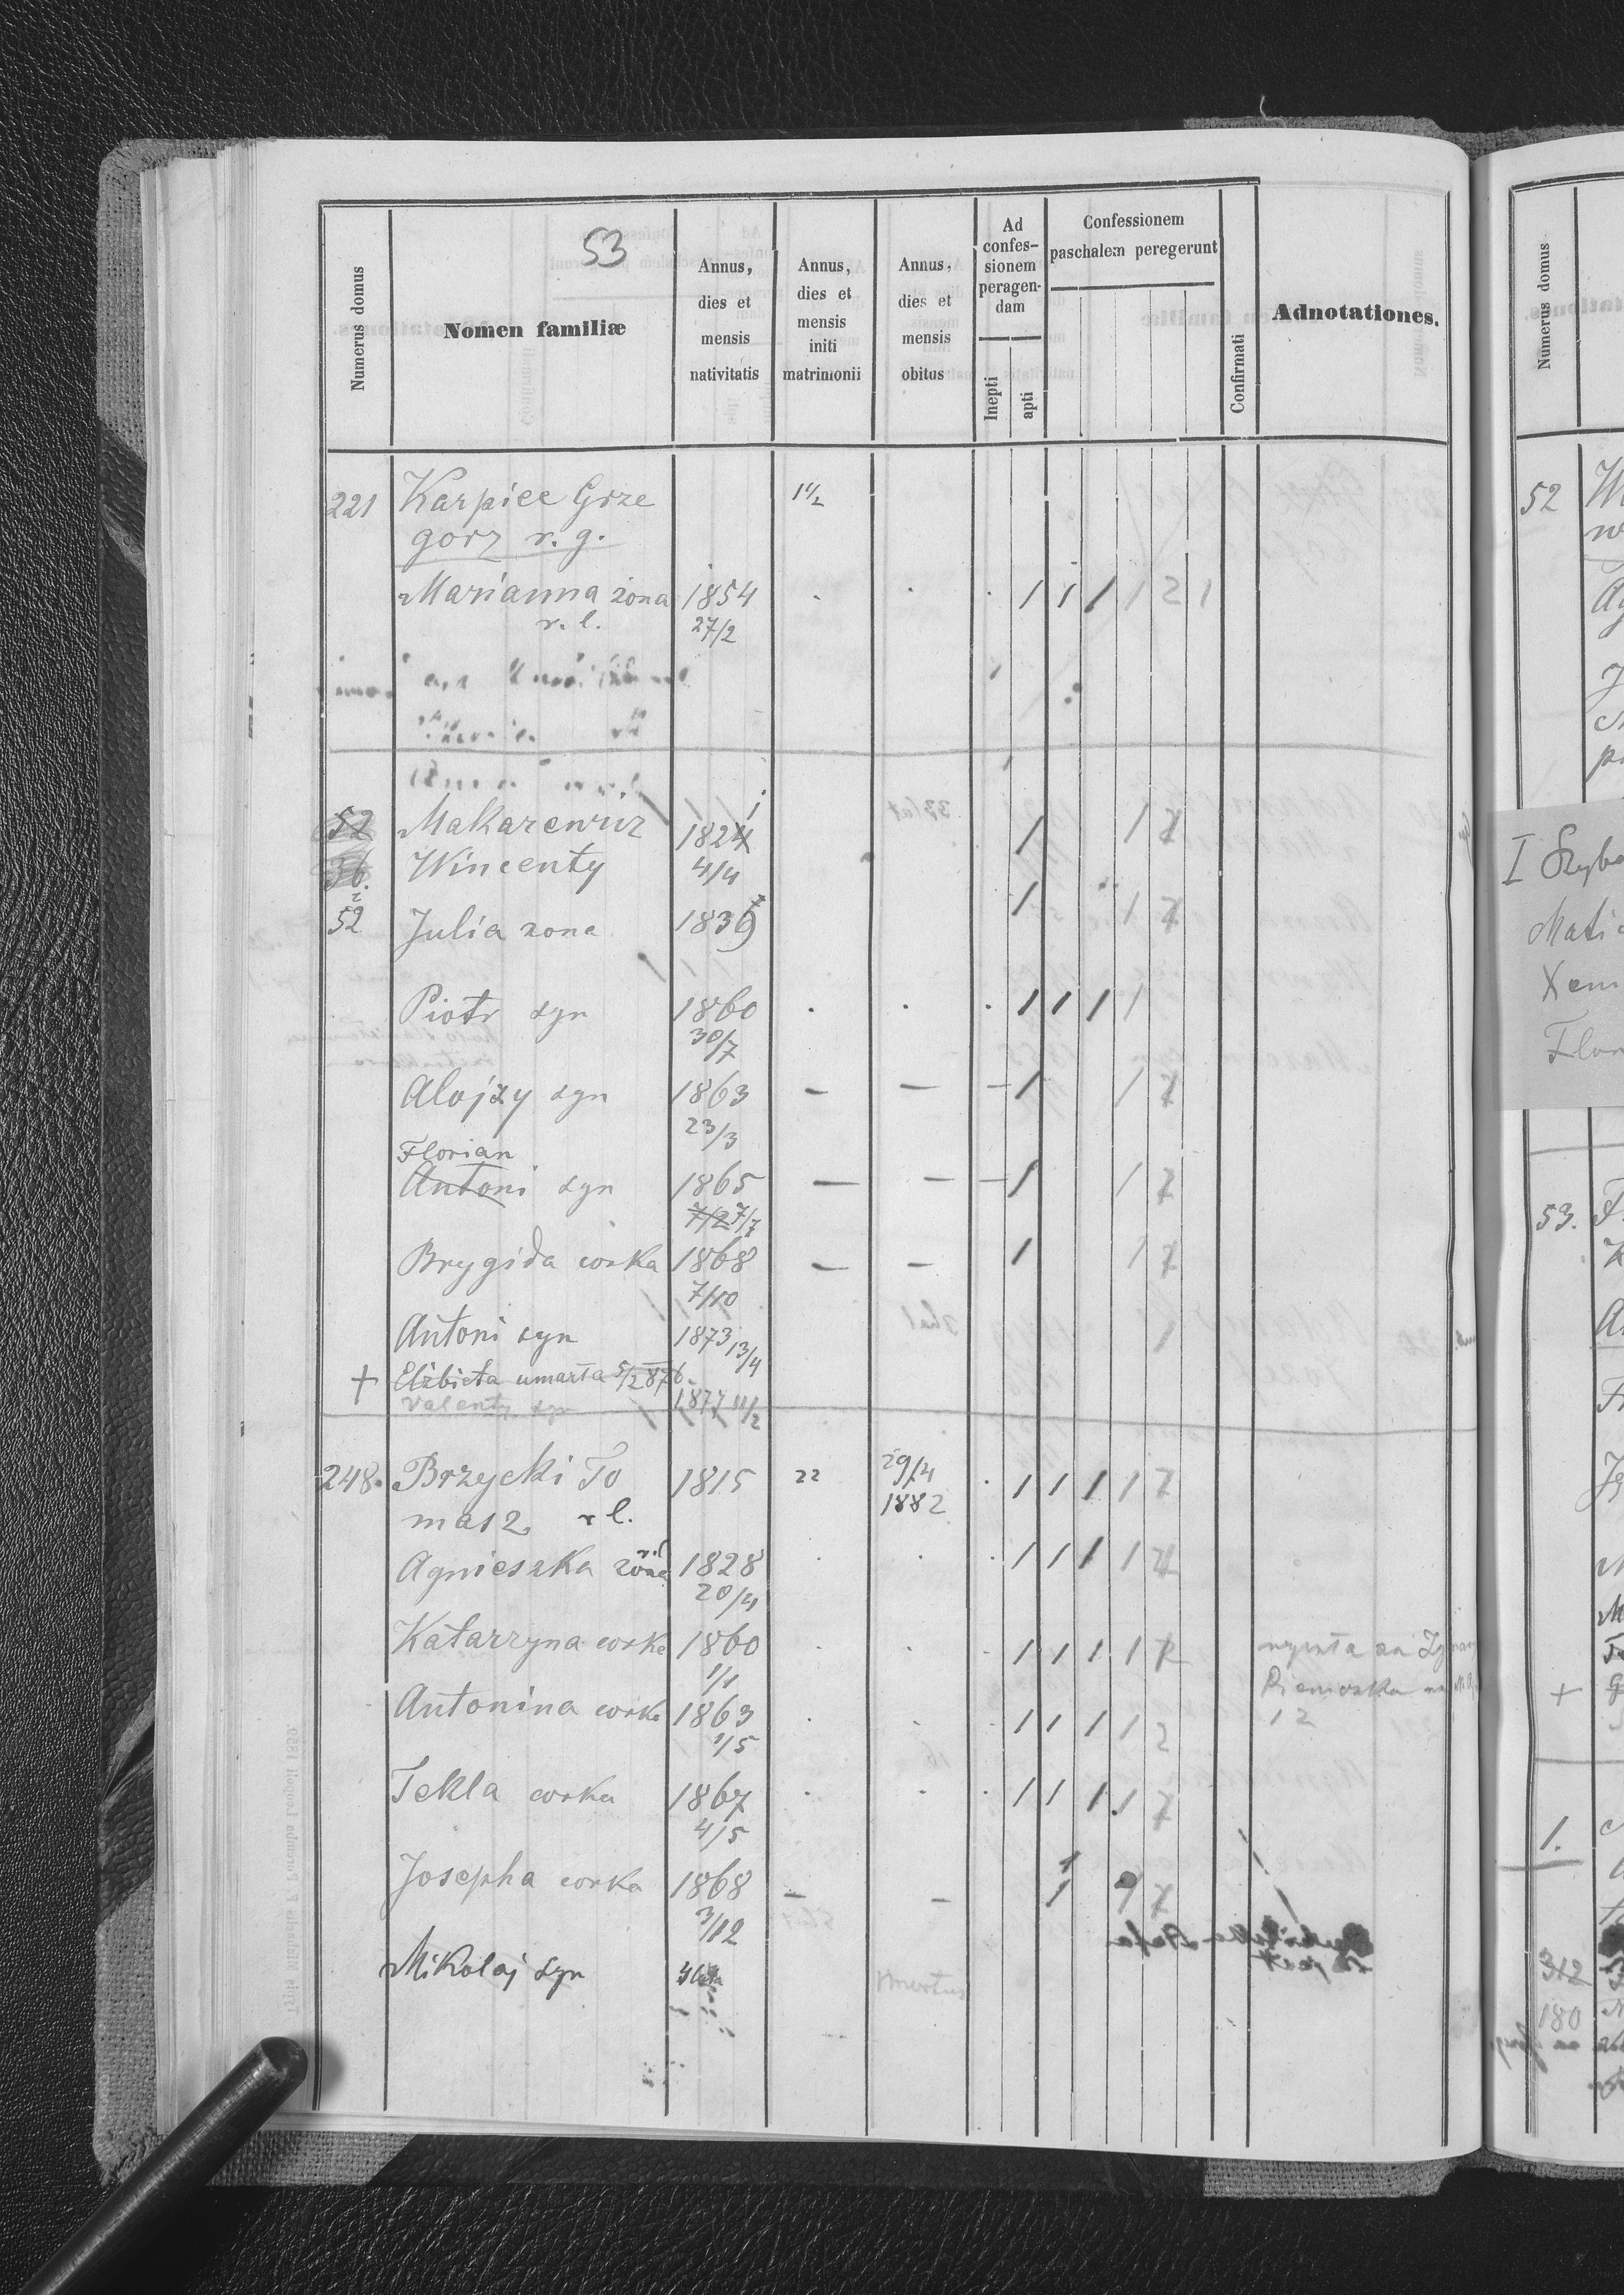 53
Numerus domus
Nomen familiæ
Annus,
dies et
mensis
nativitatis
Annus,
dies et
mensis
initi
matrimonii
Annus,
dies et
mensis
obitus
Ad
confes-
sionem
peragen-
dam
Inepti
apti
Confessionem
paschalem peregerunt
Confirmati
Adnotationes.
221 Karpiee Grze
gorz r. g.
Marianna zona 1854 1 1 1 1 2 1
r. l. 27/2
52 Makarewicz 1824 1 1 7
36. Wincenty 4/4
52 Julia zona 1839 1 1 7
Piotr syn 1860 1 1 1 1
30/7
Alojzy syn 1863 — — — 1 1 7
23/3
Florian
Antoni syn 1865 — — — 1 1 7
7/2 7/7
Brygida corka 1868 — — 1 1 7
7/10
Antoni syn 1873 13/4 1
+ Elżbieta umarła 5/2 876.
Valenty syn 1877 11/2
248. Brzycki To 1815 22 29/4 1 1 1 1 7
masz r l. 1882
Agnieszka zona 1828 1 1 1 1
20/4
Katarzyna corka 1860 1 1 1 1
1/1
Antonina corka 1863 1 1 1 1 2 12
1/5
Tekla corka 1867 1 1 1 1 7
4/5
Josepha corka 1868 — — 1 9 7
3/12
Mikolaj syn
Numerus domus
52
I Szyb
Mati
Xem
Flor
53.
+
1.
312
180